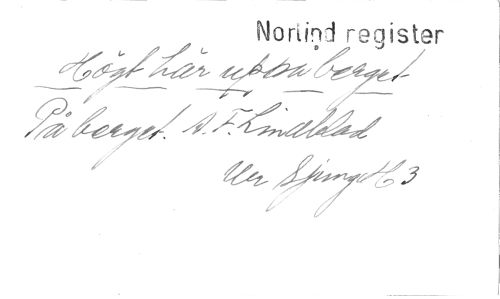 Norlind register
Högt här uppå berget
På berget. A. F. Lindblad
Ur Sjung H 3